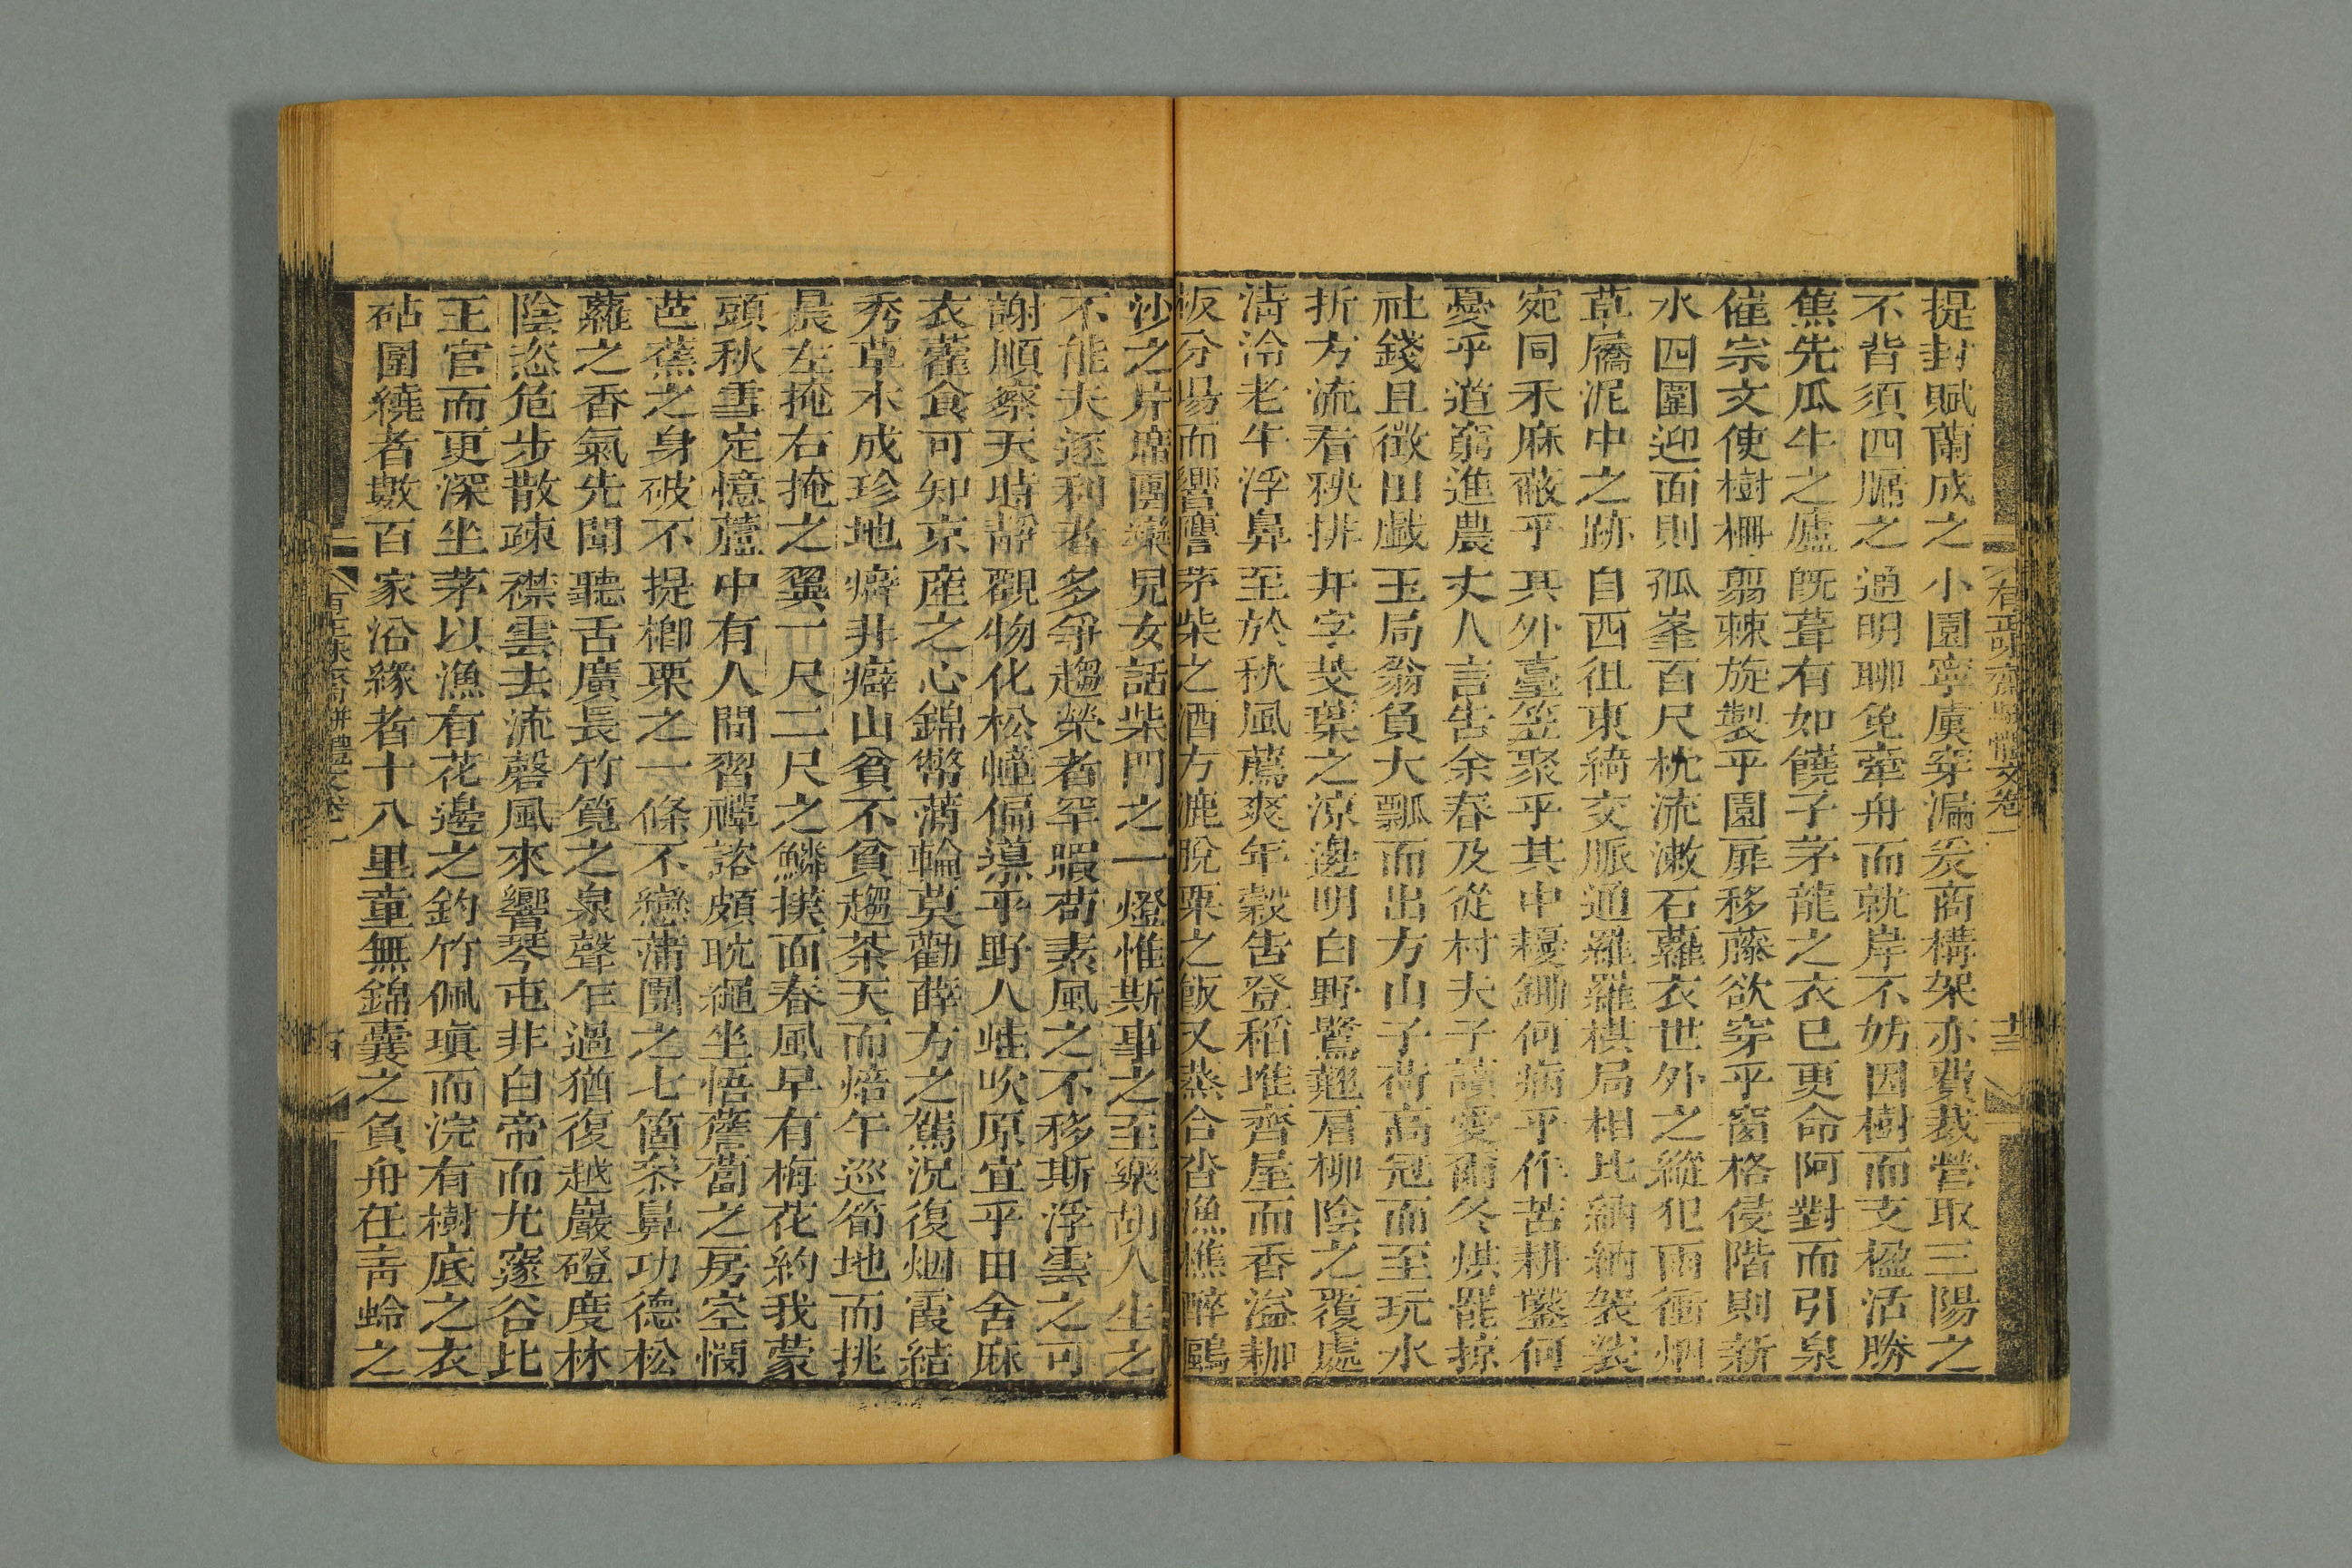 提封賦蘭成之小園寧虞穿漏爰商構架亦費裁營取三陽之
不背須四牖之通明聊免牽舟而就岸不妨因樹而支楹活勝
焦先瓜牛之廬旣葺有如饒子茅龍之衣已更命阿對而引泉
催宗文使樹柵翦棘旋製乎園扉移藤欲穿乎窗格侵階則新
水四圍迎面則孤峯百尺枕流漱石蘿衣世外之縱犯雨衝烟
草屩泥中之跡自西徂東綺交脈通羅羅棋局相比納納袈裟
宛同禾麻蔽乎其外臺笠聚乎其中耰鋤何病乎作苦耕鑿何
憂乎道窮進農丈人言告余春及從村夫子讀愛爾冬烘罷掠
社錢且徵田戲玉局翁負大瓢而出方山子荷高冠而至玩水
折方流看秧排井字芰葉之涼邊明白野鷺翹眉柳陰之覆處
淸泠老牛浮鼻至於秋風薦爽年穀告登稻堆齊屋而香溢耞
板分場而響譍茅柴之酒方漉脫粟之飯又蒸合沓漁樵醉鷗
沙之片席團欒兒女話柴門之一燈惟斯事之至樂胡人生之
不能夫逐利者多爭趨榮者罕暇苟素風之不移斯浮雲之可
謝順察天時靜觀物化松幢偏導平野八蛙吹原宜乎田舍麻
衣藿食可知京產之心錦幣蒲輪莫勸薛方之駕況復烟霞結
秀草木成珍地癖井癖山貧不貧趨茶天而焙午巡筍地而挑
晨左掩右掩之翼一尺二尺之鱗撲面春風早有梅花約我蒙
頭秋雪定憶蘆中有人間習禪諮頗耽繩坐悟薝蔔之房空憫
芭蕉之身破不提楖栗之一條不戀蒲團之七箇叅鼻功德松
蘿之香氣先聞聽舌廣長竹筧之泉聲乍過猶復越巖磴度林
陰恣危步散疎襟雲去流磬風來響琴屯非白帝而尤窪谷比
王官而更深坐茅以漁有花邊之釣竹佩瑱而浣有樹底之衣
砧圍繞者數百家沿緣者十八里童無錦囊之負舟在靑蛉之